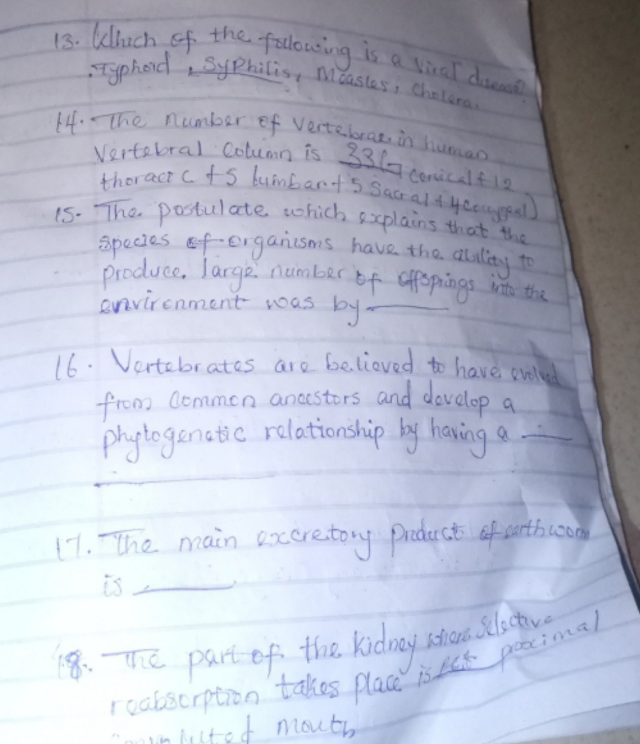 13. Which of the following is a viral disease?
Typhoid, Syphilis, Measles, Cholera.
14. The number of Vertebrae in human
Vertebral Column is 33(7 Cervical + 12
thoracic + 5 lumbar + 5 Sacral + 4
15. The postulate which explains that the
species of organisms have the ability to
produce large number of offsprings into the
environment was by
16. Vertebrates are believed to have evolved
from Common ancestors and develop a
phylogenetic relationship by having a
17. The main excretory product of earthworm
is
18. The part of the kidney where Selective
reabsorption takes place is proximal
mouth